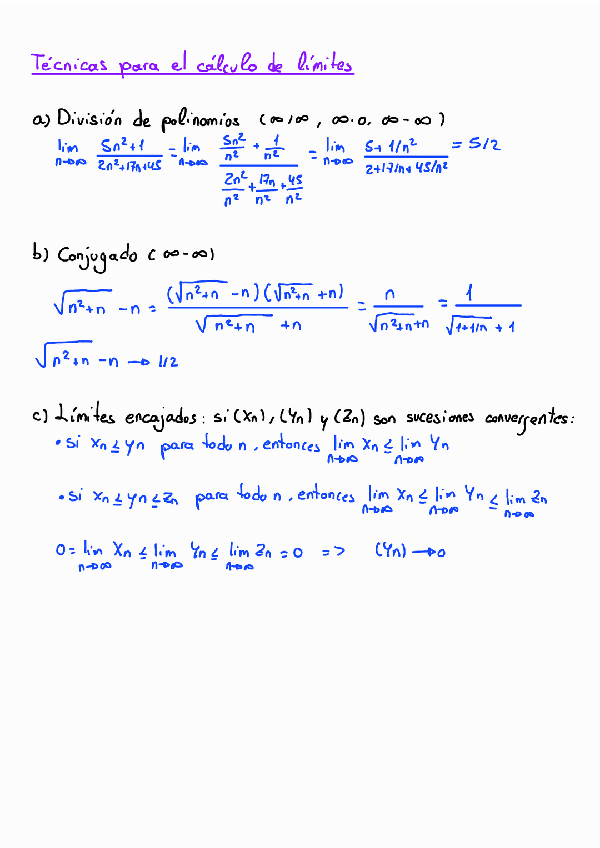 Técnicas para el cálculo de límites
a) División de polinomios (∞/∞, ∞·0, ∞-∞)
lim n→∞ (5n²+1)/(2n²+17n+45) = lim n→∞ (5n²/n² + 1/n²)/(2n²/n² + 17n/n² + 45/n²) = lim n→∞ (5+1/n²)/(2+17/n+45/n²) = 5/2
b) Conjugado (∞-∞)
√(n²+n) - n = (√(n²+n) - n)(√(n²+n) + n)/(√(n²+n) + n) = n/(√(n²+n)+n) = 1/(√(1+1/n) + 1)
√(n²+n) - n → 1/2
c) Límites encajados: si (Xn), (Yn) y (Zn) son sucesiones convergentes:
• si Xn ≤ Yn para todo n, entonces lim n→∞ Xn ≤ lim n→∞ Yn
• si Xn ≤ Yn ≤ Zn para todo n, entonces lim n→∞ Xn ≤ lim n→∞ Yn ≤ lim n→∞ Zn
0 = lim n→∞ Xn ≤ lim n→∞ Yn ≤ lim n→∞ Zn = 0 => (Yn) → 0